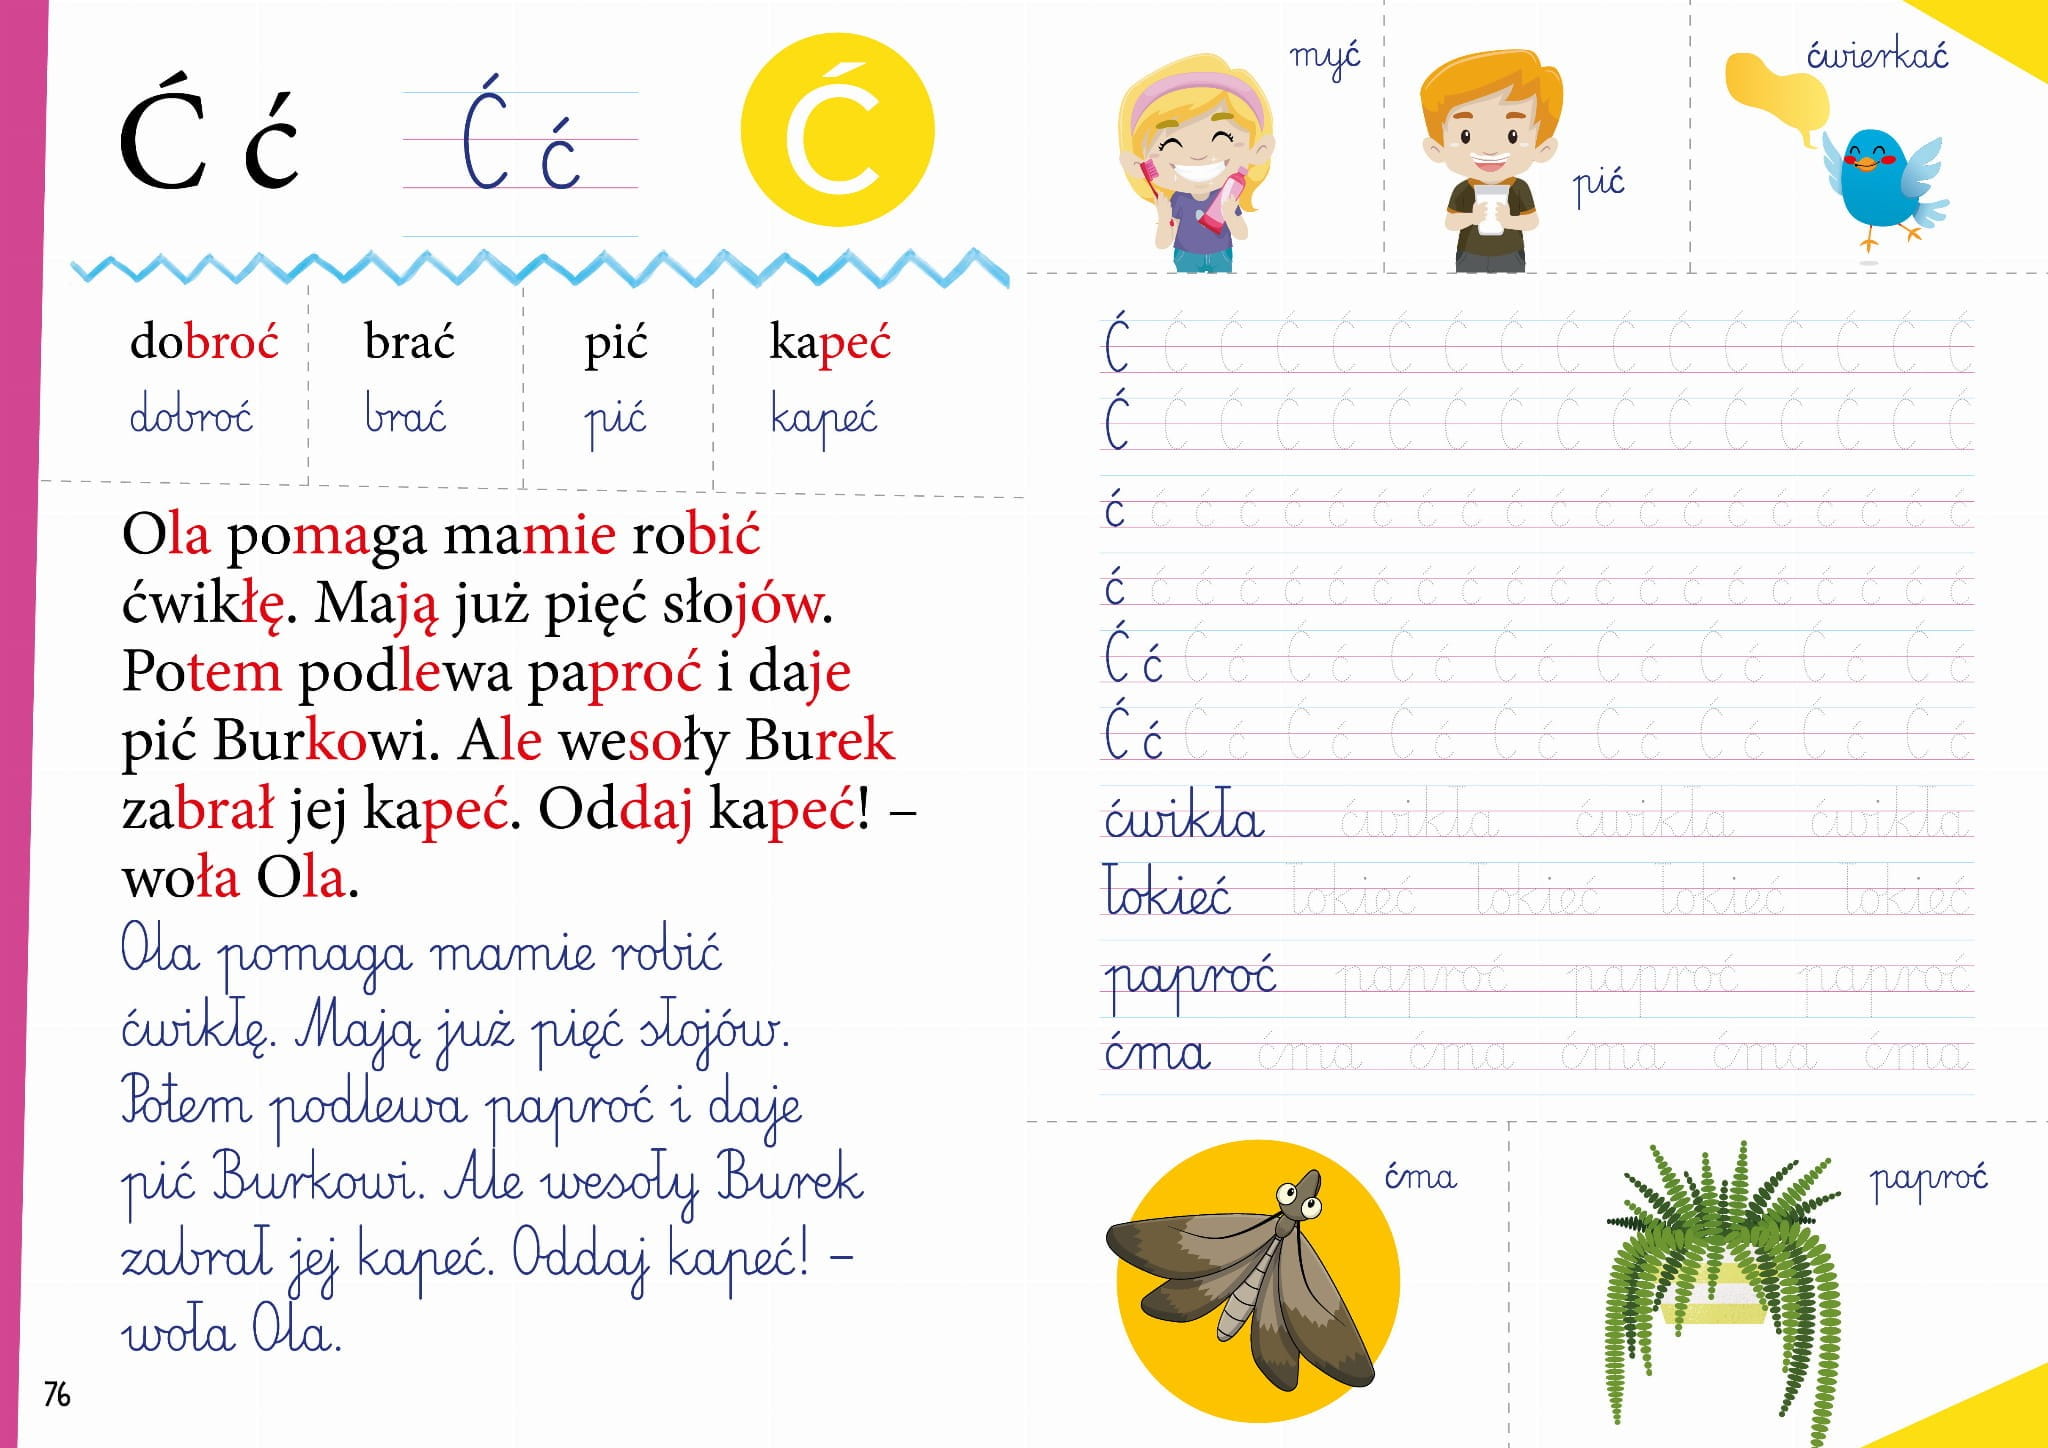 Ć ć
Ć ć
Ć
dobroć brać pić kapeć
dobroć brać pić kapeć
Ola pomaga mamie robić
ćwikłę. Mają już pięć słojów.
Potem podlewa paproć i daje
pić Burkowi. Ale wesoły Burek
zabrał jej kapeć. Oddaj kapeć! –
woła Ola.
Ola pomaga mamie robić
ćwikłę. Mają już pięć słojów.
Potem podlewa paproć i daje
pić Burkowi. Ale wesoły Burek
zabrał jej kapeć. Oddaj kapeć! –
woła Ola.
76
myć
pić
ćwierkać
Ć Ć Ć Ć Ć Ć Ć Ć Ć Ć Ć Ć Ć Ć Ć Ć
Ć Ć Ć Ć Ć Ć Ć Ć Ć Ć Ć Ć Ć Ć Ć Ć
ć ć ć ć ć ć ć ć ć ć ć ć ć ć ć ć ć ć ć ć
ć ć ć ć ć ć ć ć ć ć ć ć ć ć ć ć ć ć ć ć
Ć ć Ć ć Ć ć Ć ć Ć ć Ć ć Ć ć Ć ć Ć ć
Ć ć Ć ć Ć ć Ć ć Ć ć Ć ć Ć ć Ć ć Ć ć
ćwikła ćwikła ćwikła ćwikła
łokieć łokieć łokieć łokieć łokieć
paproć paproć paproć paproć
ćma ćma ćma ćma ćma ćma
ćma
paproć